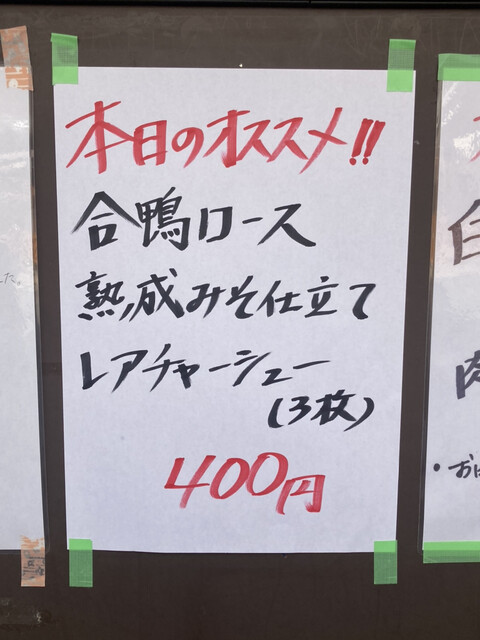 本日のオススメ!!
合鴨ロース
熟成みそ仕立て
レアチャーシュー
(3枚)
400円
肉
・おは